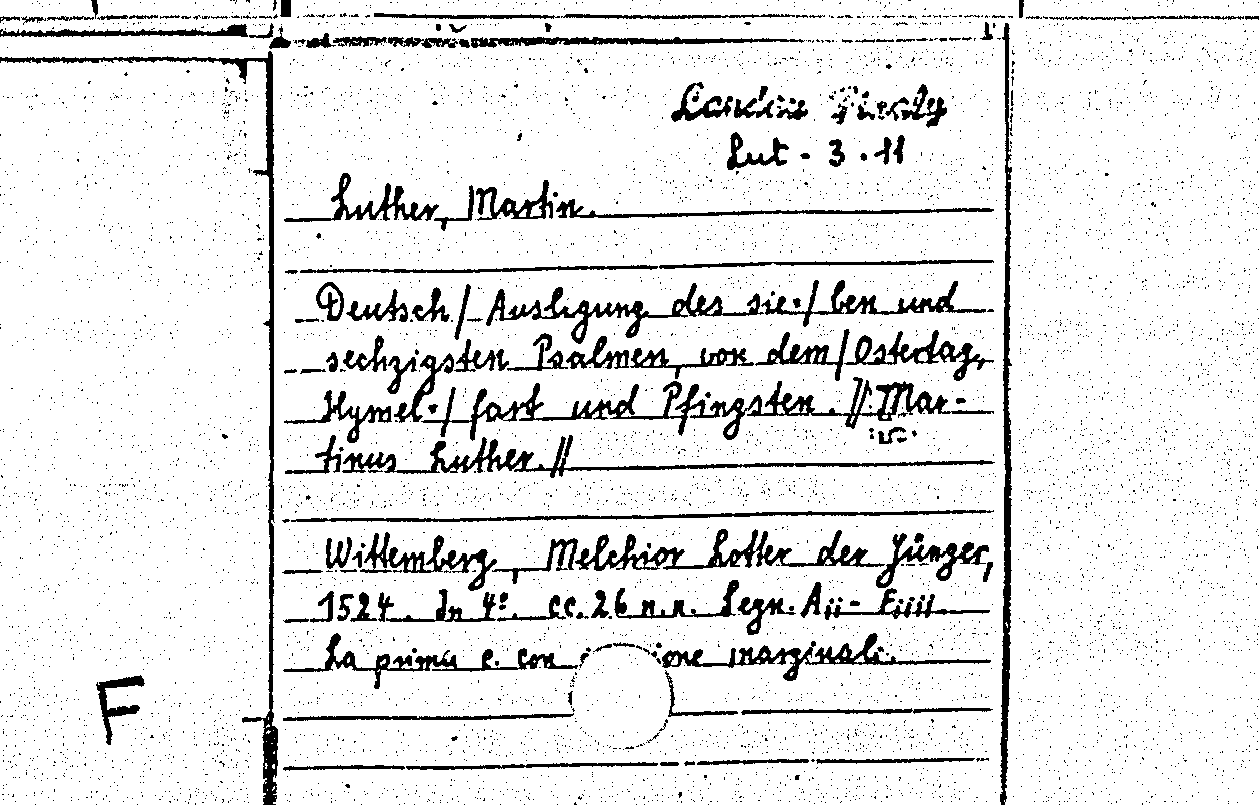 Lut - 3 . 11
Luther, Martin.
Deutsch/ Auslegung des sie-/ ben und
sechzigsten Psalmen, von dem/ Ostertag,
Hymel-/ fart und Pfingsten. // Mar-
tinus Luther. //
Wittemberg, Melchior Lotter der Jünger,
1524. In 4º. cc. 26 n.n. Segn. Aii - Fiiii
La prima c. con marginali.
F